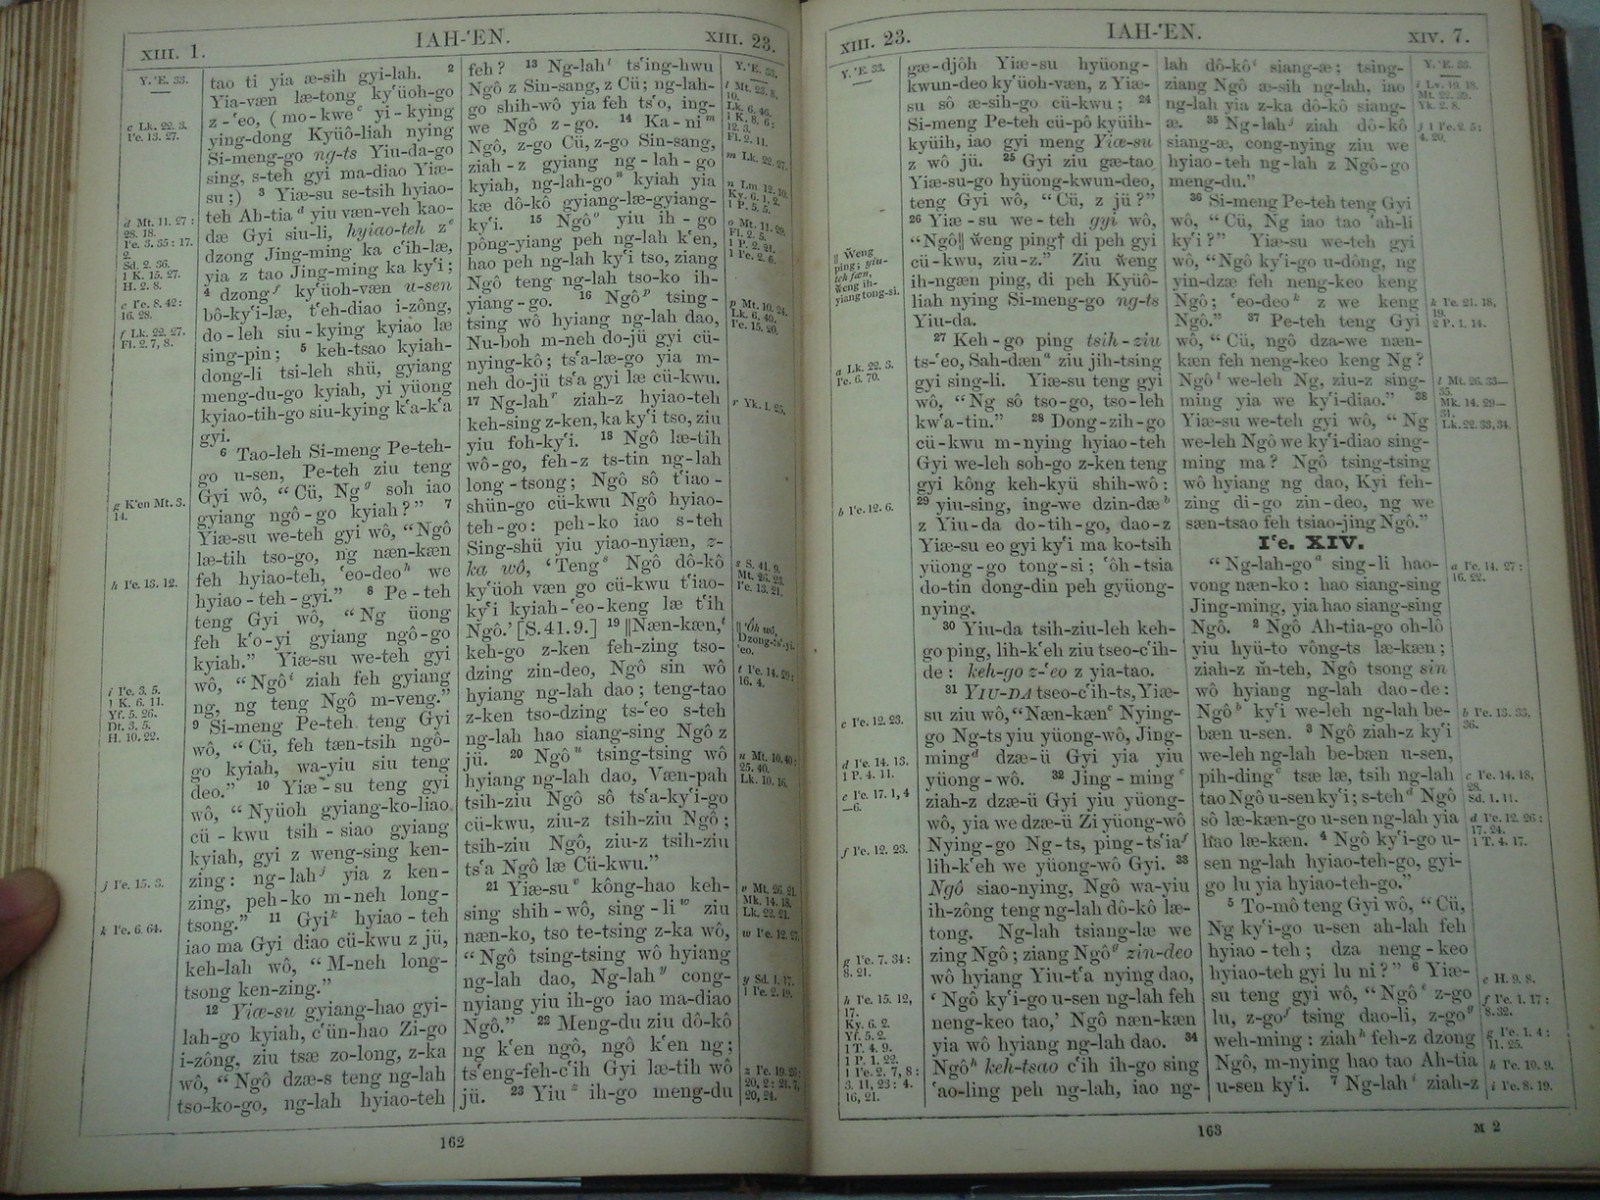 XIII. 1.
IAH-'EN.
XIII. 23.
Y. 'E. 33.
c Lk. 22. 3.
I'e. 13. 27.
d Mt. 11. 27:
28. 18.
I'e. 3. 35: 17.
2.
Sd. 2. 36.
1 K. 15. 27.
H. 2. 8.
e I'e. 8. 42:
16. 28.
f Lk. 22. 27.
Fl. 2. 7, 8.
g K'en Mt. 3.
14.
h I'e. 13. 12.
i I'e. 3. 5.
1 K. 6. 11.
Yf. 5. 26.
Dt. 3. 5.
H. 10. 22.
j I'e. 15. 3.
k I'e. 6. 64.
tao ti yia æ-sih gyi-lah. 2
Yia-væn læ-tong ky'üoh-go
z-'eo, (mo-kwe c yi-kying
ying-dong Kyüô-liah nying
Si-meng-go ng-ts Yiu-da-go
sing, s-teh gyi ma-diao Yiæ-
su;) 3 Yiæ-su se-tsih hyiao-
teh Ah-tia d yiu væn-veh kao-
dæ Gyi siu-li, hyiao-teh z e
dzong Jing-ming ka c'ih-læ,
yia z tao Jing-ming ka ky'i;
4 dzong f ky'üoh-væn u-sen
bô-ky'i-læ, t'eh-diao i-zông,
do-leh siu-kying kyiao læ
sing-pin; 5 keh-tsao kyiah-
dong-li tsi-leh shü, gyiang
meng-du-go kyiah, yi yüong
kyiao-tih-go siu-kying k'a-k'a
gyi.
6 Tao-leh Si-meng Pe-teh-
go u-sen, Pe-teh ziu teng
Gyi wô, “Cü, Ng g soh iao
gyiang ngô-go kyiah?” 7
Yiæ-su we-teh gyi wô, “Ngô
læ-tih tso-go, ng næn-kæn
feh hyiao-teh, 'eo-deo h we
hyiao-teh-gyi.” 8 Pe-teh
teng Gyi wô, “Ng üong
feh k'o-yi gyiang ngô-go
kyiah.” Yiæ-su we-teh gyi
wô, “Ngô i ziah feh gyiang
ng, ng teng Ngô m-veng.”
9 Si-meng Pe-teh teng Gyi
wô, “Cü, feh tæn-tsih ngô-
go kyiah, wa-yiu siu teng
deo.” 10 Yiæ-su teng gyi
wô, “Nyüoh gyiang-ko-liao
cü-kwu tsih-siao gyiang
kyiah, gyi z weng-sing ken-
zing: ng-lah j yia z ken-
zing, peh-ko m-neh long-
tsong.” 11 Gyi k hyiao-teh
iao ma Gyi diao cü-kwu z jü,
keh-lah wô, “M-neh long-
tsong ken-zing.”
12 Yiæ-su gyiang-hao gyi-
lah-go kyiah, c'ün-hao Zi-go
i-zông, ziu tsæ zo-long, z-ka
wô, “Ngô dzæ-s teng ng-lah
tso-ko-go, ng-lah hyiao-teh
feh? 13 Ng-lah l ts'ing-hwu
Ngô z Sin-sang, z Cü; ng-lah-
go shih-wô yia feh ts'o, ing-
we Ngô z-go. 14 Ka-ni m
Ngô, z-go Cü, z-go Sin-sang,
ziah-z gyiang ng-lah-go
kyiah, ng-lah-go n kyiah yia
kæ dô-kô gyiang-læ-gyiang-
ky'i. 15 Ngô o yiu ih-go
pông-yiang peh ng-lah k'en,
hao peh ng-lah ky'i tso, ziang
Ngô teng ng-lah tso-ko ih-
yiang-go. 16 Ngô p tsing-
tsing wô hyiang ng-lah dao,
Nu-boh m-neh do-jü gyi cü-
nying-kô; ts'a-læ-go yia m-
neh do-jü ts'a gyi læ cü-kwu.
17 Ng-lah r ziah-z hyiao-teh
keh-sing z-ken, ka ky'i tso, ziu
yiu foh-ky'i. 18 Ngô læ-tih
wô-go, feh-z ts-tin ng-lah
long-tsong; Ngô sô t'iao-
shün-go cü-kwu Ngô hyiao-
teh-go: peh-ko iao s-teh
Sing-shü yiu yiao-nyiæn, z-
ka wô, ‘Teng s Ngô dô-kô
ky'üoh væn go cü-kwu t'iao-
ky'i kyiah-'eo-keng læ t'ih
Ngô.’ [S. 41. 9.] 19 ‖Næn-kæn, t
keh-go z-ken feh-zing tso-
dzing zin-deo, Ngô sin wô
hyiang ng-lah dao; teng-tao
z-ken tso-dzing ts-'eo s-teh
ng-lah hao siang-sing Ngô z
jü. 20 Ngô u tsing-tsing wô
hyiang ng-lah dao, Væn-pah
tsih-ziu Ngô sô ts'a-ky'i-go
cü-kwu, ziu-z tsih-ziu Ngô;
tsih-ziu Ngô, ziu-z tsih-ziu
ts'a Ngô læ Cü-kwu.”
21 Yiæ-su v kông-hao keh-
sing shih-wô, sing-li w ziu
næn-ko, tso te-tsing z-ka wô,
“Ngô tsing-tsing wô hyiang
ng-lah dao, Ng-lah y cong-
nyiang yiu ih-go iao ma-diao
Ngô.” 22 Meng-du ziu dô-kô
ng k'en ngô, ngô k'en ng;
ts'eng-feh-c'ih Gyi læ-tih wô
jü. 23 Yiu z ih-go meng-du
Y. 'E. 33.
l Mt. 23. 8,
10.
Lk. 6. 46.
1 K. 8. 6:
12. 3.
Fl. 2. 11.
m Lk. 22. 27.
n Lm. 12. 10.
Ky. 6. 1, 2.
1 P. 5. 5.
o Mt. 11. 29.
Fl. 2. 5.
1 P. 2. 21.
1 I'e. 2. 6.
p Mt. 10. 24.
Lk. 6. 40.
I'e. 15. 20.
r Yk. 1. 25.
s S. 41. 9.
Mt. 26. 23.
I'e. 13. 21.
‖ 'Ôh wô,
Dzong-ts'-yi-
'eo.
t I'e. 14. 29:
16. 4.
u Mt. 10. 40:
25. 40.
Lk. 10. 16.
v Mt. 26. 21.
Mk. 14. 18.
Lk. 22. 21.
w I'e. 12. 27.
y Sd. 1. 17.
1 I'e. 2. 19.
z I'e. 19. 26:
20. 2: 21. 7,
20, 24.
162
XIII. 23.
IAH-'EN.
XIV. 7.
Y. 'E. 33.
‖ Weng
ping; yiu-
teh fæn,
Weng ih-
yiang tong-si.
a Lk. 22. 3.
I'e. 6. 70.
b I'e. 12. 6.
c I'e. 12. 23.
d I'e. 14. 13.
1 P. 4. 11.
e I'e. 17. 1, 4
—6.
f I'e. 12. 23.
g I'e. 7. 34:
8. 21.
h I'e. 15. 12,
17.
Ky. 6. 2.
Yf. 5. 2.
1 T. 4. 9.
1 P. 1. 22.
1 I'e. 2. 7, 8:
3. 11, 23: 4.
16, 21.
gæ-djôh Yiæ-su hyüong-
kwun-deo ky'üoh-væn, z Yiæ-
su sô æ-sih-go cü-kwu; 24
Si-meng Pe-teh cü-pô kyüih-
kyüih, iao gyi meng Yiæ-su
z wô jü. 25 Gyi ziu gæ-tao
Yiæ-su-go hyüong-kwun-deo,
teng Gyi wô, “Cü, z jü?”
26 Yiæ-su we-teh gyi wô,
“Ngô‖ weng ping† di peh gyi
cü-kwu, ziu-z.” Ziu weng
ih-ngæn ping, di peh Kyüô-
liah nying Si-meng-go ng-ts
Yiu-da.
27 Keh-go ping tsih-ziu
ts-'eo, Sah-dæn a ziu jih-tsing
gyi sing-li. Yiæ-su teng gyi
wô, “Ng sô tso-go, tso-leh
kw'a-tin.” 28 Dong-zih-go
cü-kwu m-nying hyiao-teh
Gyi we-leh soh-go z-ken teng
gyi kông keh-kyü shih-wô:
29 yiu-sing, ing-we dzin-dæ b
z Yiu-da do-tih-go, dao-z
Yiæ-su eo gyi ky'i ma ko-tsih
yüong-go tong-si; 'ôh-tsia
do-tin dong-din peh gyüong-
nying.
30 Yiu-da tsih-ziu-leh keh-
go ping, lih-k'eh ziu tseo-c'ih-
de: keh-go z-'eo z yia-tao.
31 YIU-DA tseo-c'ih-ts, Yiæ-
su ziu wô, “Næn-kæn c Nying-
go Ng-ts yiu yüong-wô, Jing-
ming d dzæ-ü Gyi yia yiu
yüong-wô. 32 Jing-ming e
ziah-z dzæ-ü Gyi yiu yüong-
wô, yia we dzæ-ü Zi yüong-wô
Nying-go Ng-ts, ping-ts'ia f
lih-k'eh we yüong-wô Gyi. 33
Ngô siao-nying, Ngô wa-yiu
ih-zông teng ng-lah dô-kô læ-
tong. Ng-lah tsiang-læ we
zing Ngô; ziang Ngô g zin-deo
wô hyiang Yiu-t'a nying dao,
‘Ngô ky'i-go u-sen ng-lah feh
neng-keo tao,’ Ngô næn-kæn
yia wô hyiang ng-lah dao. 34
Ngô h keh-tsao c'ih ih-go sing
'ao-ling peh ng-lah, iao ng-
lah dô-kô i siang-æ; tsing-
ziang Ngô æ-sih ng-lah, iao
ng-lah yia z-ka dô-kô siang-
æ. 35 Ng-lah j ziah dô-kô
siang-æ, cong-nying ziu we
hyiao-teh ng-lah z Ngô-go
meng-du.”
36 Si-meng Pe-teh teng Gyi
wô, “Cü, Ng iao tao 'ah-li
ky'i?” Yiæ-su we-teh gyi
wô, “Ngô ky'i-go u-dông, ng
yin-dzæ feh neng-keo keng
Ngô; 'eo-deo k z we keng
Ngô.” 37 Pe-teh teng Gyi
wô, “Cü, ngô dza-we næn-
kæn feh neng-keo keng Ng?
Ngô l we-leh Ng, ziu-z sing-
ming yia we ky'i-diao.” 38
Yiæ-su we-teh gyi wô, “Ng
we-leh Ngô we ky'i-diao sing-
ming ma? Ngô tsing-tsing
wô hyiang ng dao, Kyi feh-
zing di-go zin-deo, ng we
sæn-tsao feh tsiao-jing Ngô.”
I'e. XIV.
“Ng-lah-go a sing-li hao-
vong næn-ko: hao siang-sing
Jing-ming, yia hao siang-sing
Ngô. 2 Ngô Ah-tia-go oh-lô
yiu hyü-to vông-ts læ-kæn;
ziah-z m-teh, Ngô tsong sin
wô hyiang ng-lah dao-de:
Ngô b ky'i we-leh ng-lah be-
bæn u-sen. 3 Ngô ziah-z ky'i
we-leh ng-lah be-bæn u-sen,
pih-ding c tsæ læ, tsih ng-lah
tao Ngô u-sen ky'i; s-teh d Ngô
sô læ-kæn-go u-sen ng-lah yia
hao læ-kæn. 4 Ngô ky'i-go u-
sen ng-lah hyiao-teh-go, gyi-
go lu yia hyiao-teh-go.”
5 To-mô teng Gyi wô, “Cü,
Ng ky'i-go u-sen ah-lah feh
hyiao-teh; dza neng-keo
hyiao-teh gyi lu ni?” 6 Yiæ-
su teng gyi wô, “Ngô e z-go
lu, z-go f tsing dao-li, z-go g
weh-ming: ziah h feh-z dzong
Ngô, m-nying hao tao Ah-tia
u-sen ky'i. 7 Ng-lah i ziah-z
Y. 'E. 33.
i Lv. 19. 18.
Mt. 22. 39.
Yk. 2. 8.
j 1 I'e. 2. 5:
4. 20.
k I'e. 21. 18,
19.
2 P. 1. 14.
l Mt. 26. 33—
35.
Mk. 14. 29—
31.
Lk. 22. 33, 34.
a I'e. 14. 27:
16. 22.
b I'e. 13. 33,
36.
c I'e. 14. 18,
28.
Sd. 1. 11.
d I'e. 12. 26:
17. 24.
1 T. 4. 17.
e H. 9. 8.
f I'e. 1. 17:
8. 32.
g I'e. 1. 4:
11. 25.
h I'e. 10. 9.
i I'e. 8. 19.
163
M 2